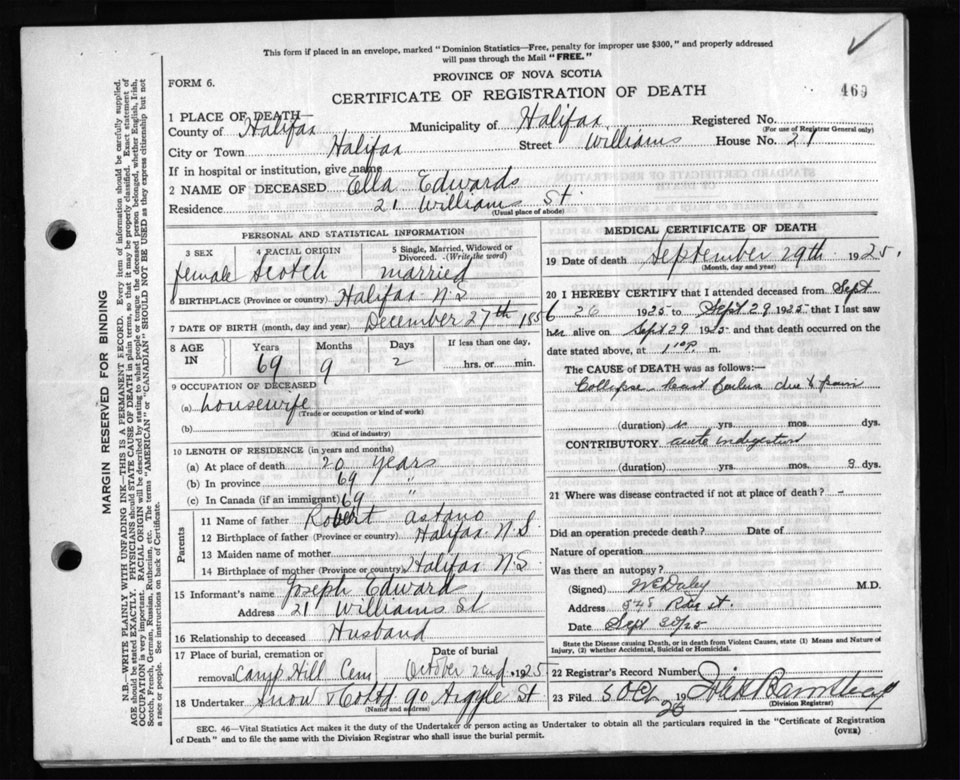 This form if placed in an envelope, marked "Dominion Statistics—Free, penalty for improper use $300," and properly addressed
will pass through the Mail "FREE."
PROVINCE OF NOVA SCOTIA
FORM 6.
CERTIFICATE OF REGISTRATION OF DEATH
469
1 PLACE OF DEATH—
County of Halifax Municipality of Halifax Registered No.
(For use of Registrar General only)
City or Town Halifax Street Williams House No. 21
If in hospital or institution, give name
2 NAME OF DECEASED Ella Edwards
Residence 21 Williams St
(Usual place of abode)
PERSONAL AND STATISTICAL INFORMATION
3 SEX 4 RACIAL ORIGIN 5 Single, Married, Widowed or
Divorced. (Write the word)
female Scotch married
6 BIRTHPLACE (Province or country) Halifax N.S
7 DATE OF BIRTH (month, day and year) December 27th 185
8 AGE IN Years Months Days If less than one day,
69 9 2 hrs. or min.
9 OCCUPATION OF DECEASED
(a) housewife
(Trade or occupation or kind of work)
(b)
(Kind of industry)
10 LENGTH OF RESIDENCE (in years and months)
(a) At place of death 20 years
(b) In province 69 "
(c) In Canada (if an immigrant) 69 "
Parents
11 Name of father Robert
12 Birthplace of father (Province or country) Halifax N.S.
13 Maiden name of mother
14 Birthplace of mother (Province or country) Halifax N.S
15 Informant's name Joseph Edward
Address 21 Williams St
16 Relationship to deceased Husband
17 Place of burial, cremation or Date of burial
removal Camp Hill Cem October 2nd 1925
18 Undertaker Snow & 90 Argyle St
(Name and address)
MEDICAL CERTIFICATE OF DEATH
19 Date of death September 29th 1925.
(Month, day and year)
20 I HEREBY CERTIFY that I attended deceased from Sept
26 1925 to Sept 29 1925 that I last saw
her alive on Sept 29 1925 and that death occurred on the
date stated above, at m.
The CAUSE of DEATH was as follows:—
Collapse heart failure due to pain
(duration) yrs. mos. dys.
CONTRIBUTORY acute indigestion
(duration) yrs. mos. 3 dys.
21 Where was disease contracted if not at place of death? -
Did an operation precede death? Date of
Nature of operation
Was there an autopsy?
(Signed) M.D.
Address St.
Date Sept 30/25
State the Disease causing Death, or in death from Violent Causes, state (1) Means and Nature of
Injury, (2) whether Accidental, Suicidal or Homicidal.
22 Registrar's Record Number
23 Filed 19
(Division Registrar)
SEC. 46—Vital Statistics Act makes it the duty of the Undertaker or person acting as Undertaker to obtain all the particulars required in the "Certificate of Registration
of Death" and to file the same with the Division Registrar who shall issue the burial permit.
(OVER)
MARGIN RESERVED FOR BINDING
N.B.—WRITE PLAINLY WITH UNFADING INK—THIS IS A PERMANENT RECORD. Every item of information should be carefully supplied.
AGE should be stated EXACTLY. PHYSICIANS should STATE CAUSE OF DEATH in plain terms, so that it may be properly classified. Exact statement of
OCCUPATION is very important. RACIAL ORIGIN will be described by stating to what people or tongue the deceased person belonged, whether English, Irish,
Scotch, French, German, Russian, Ruthenian, etc. The terms "AMERICAN" or "CANADIAN" SHOULD NOT BE USED as they express citizenship but not
a race or people. See instructions on back of Certificate.